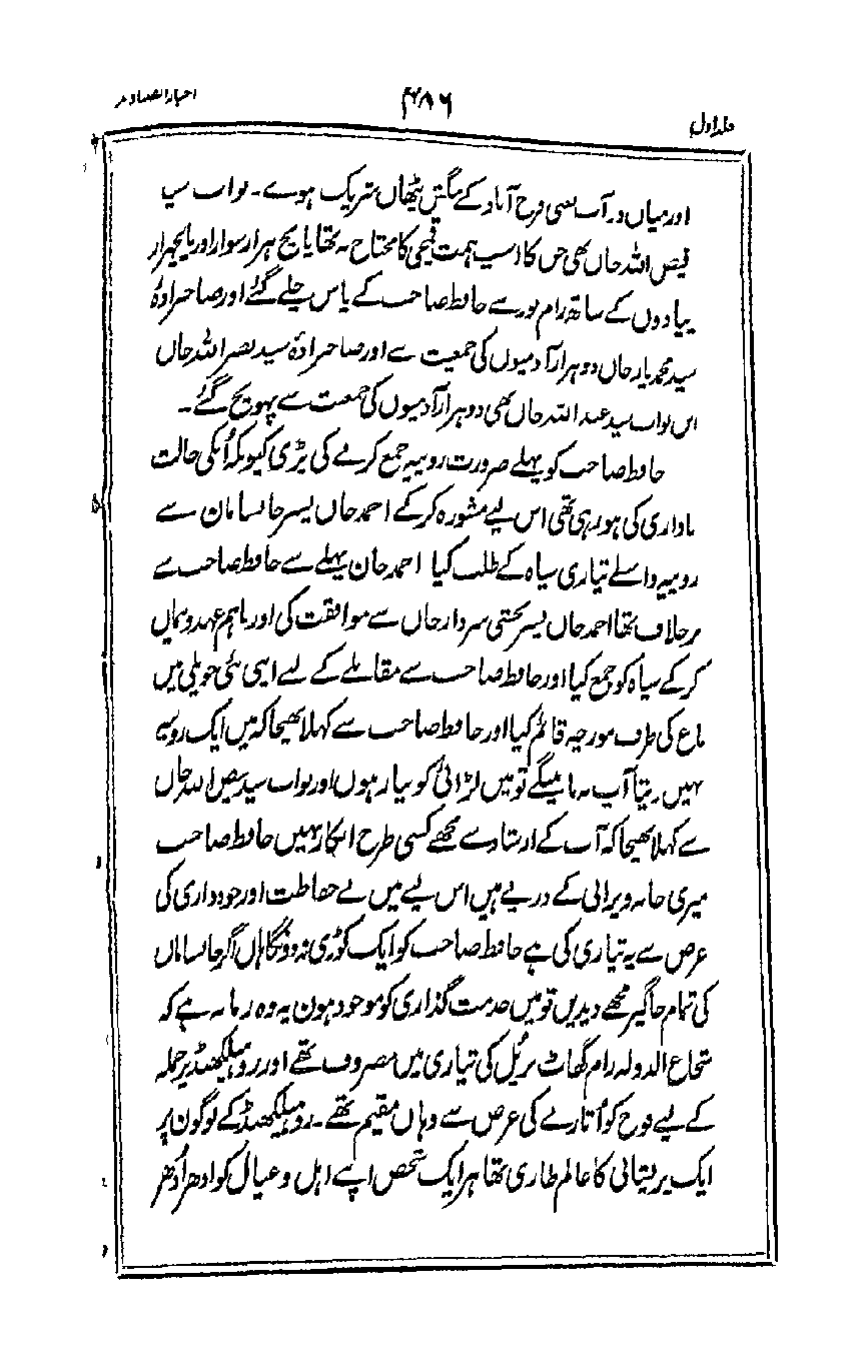 اخبار الصنادید
۴۸۶
جلد اول
اور میان دوآب یعنی فرخ آباد کے بنگش پٹھان شریک ہوے۔ نواب سید
فیض اللہ خاں بھی جن کا اسپ ہمت قمچی کا محتاج نہ تھا پانچ ہزار سوار اور پانچہزار
پیادوں کے ساتھ رام پور سے حافظ صاحب کے پاس چلے گئے اور صاحبزادۂ
سید محمد یار خاں دو ہزار آدمیوں کی جمعیت سے اور صاحبزادۂ سید نصر اللہ خاں
ابن نواب سید عبد اللہ خاں بھی دو ہزار آدمیوں کی جمعیت سے پہونچ گئے۔
حافظ صاحب کو پہلے ضرورت روپیہ جمع کرنے کی پڑی کیونکہ اُنکی حالت
ناداری کی ہو رہی تھی اس لیے مشورہ کرکے احمد خاں پسر خانسامان سے
روپیہ واسطے تیاری سپاہ کے طلب کیا احمد خان پہلے سے حافظ صاحب سے
برخلاف تھا احمد خاں پسر بخشی سردار خاں سے موافقت کی اور باہم عہد و پیمان
کرکے سپاہ کو جمع کیا اور حافظ صاحب سے مقابلے کے لیے اپنی نئی حویلی میں
باغ کی طرف مورچہ قائم کیا اور حافظ صاحب سے کہلا بھیجا کہ میں ایک روپیہ
نہیں دیتا آپ نہ مانینگے تو میں لڑائی کو تیار ہوں اور نواب سید فیض اللہ خاں
سے کہلا بھیجا کہ آپ کے ارشاد سے مجھے کسی طرح انکار نہیں حافظ صاحب
میری خانہ ویرانی کے درپے ہیں اس لیے میں نے حفاظت اور خودداری کی
غرض سے یہ تیاری کی ہے حافظ صاحب کو ایک کوڑی نہ دونگا ہاں اگر خانساماں
کی تمام جاگیر مجھے دیدیں تو میں خدمت گذاری کو موجود ہون یہ وہ زمانہ ہے کہ
شجاع الدولہ رام گھاٹ پر پُل کی تیاری میں مصروف تھے اور روہیلکھنڈ پر حملہ
کے لیے فوج کو اُتارنے کی غرض سے وہاں مقیم تھے۔ روہیلکھنڈ کے لوگون پر
ایک پریشانی کا عالم طاری تھا ہر ایک شخص اپنے اہل و عیال کو ادھر اُدھر